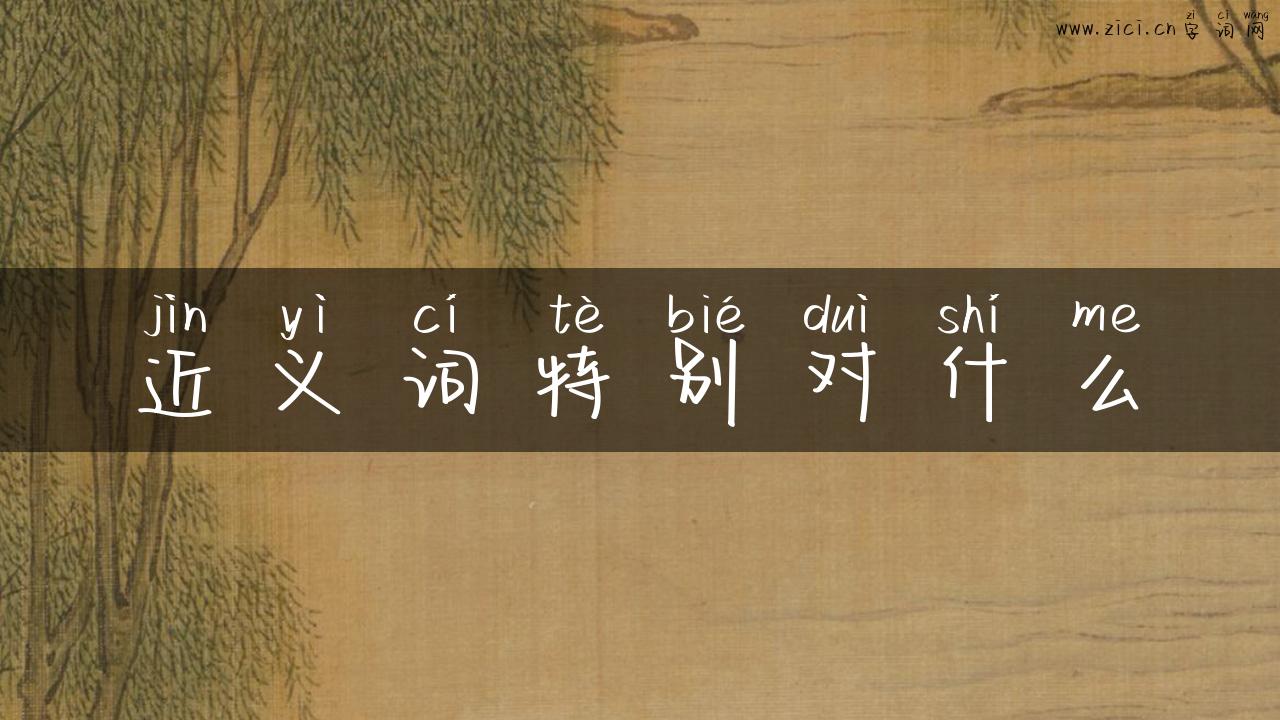 zì cí wǎng
www.zici.cn 字词网
jìn yì cí tè bié duì shí me
近义词特别对什么